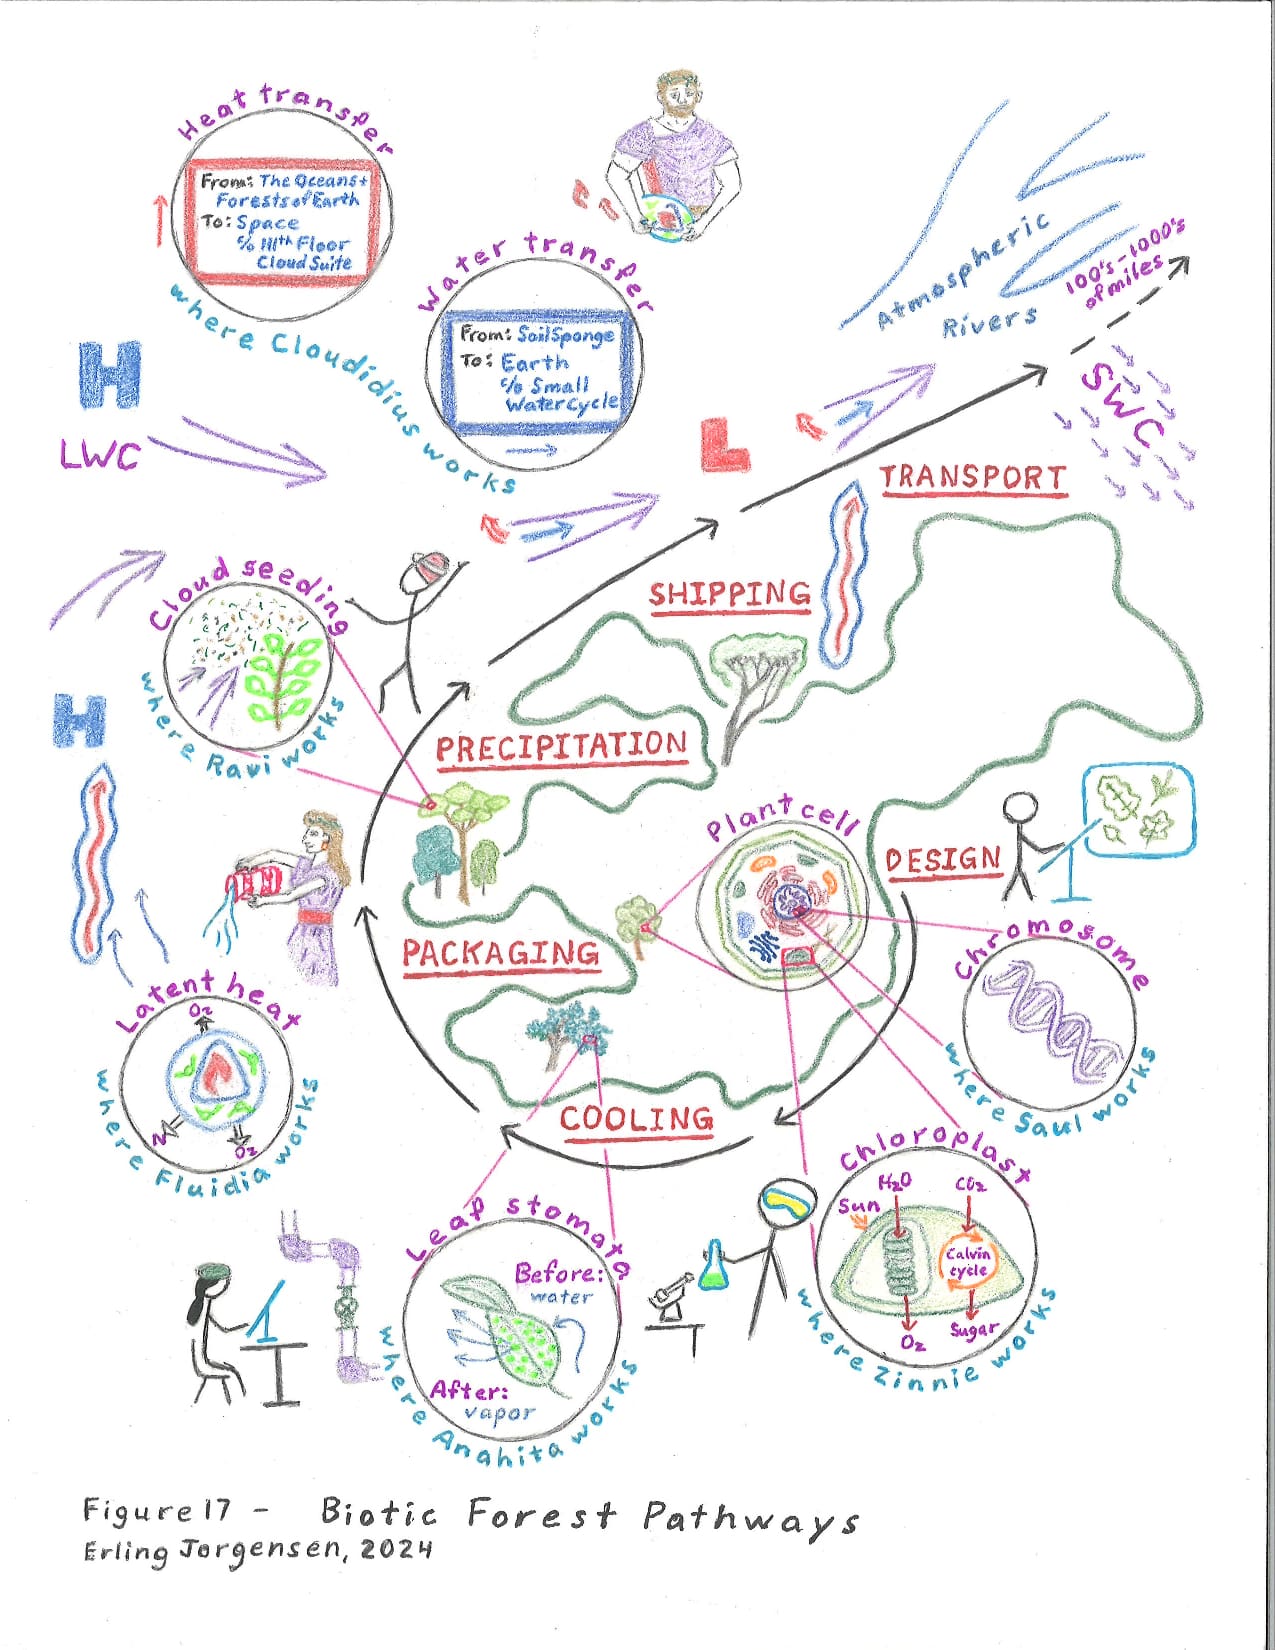 Heat transfer
From: The Oceans +
Forests of Earth
To: Space
c/o 111th Floor
Cloud Suite
where Cloudidius works
Water transfer
From: Soil Sponge
To: Earth
c/o Small
Water Cycle
Atmospheric
Rivers
100's-1000's
of miles
H
LWC
L
SWC
TRANSPORT
SHIPPING
Cloud seeding
where Ravi works
H
PRECIPITATION
Plant cell
DESIGN
PACKAGING
Chromosome
where Saul works
Latent heat
O2
N2
O2
where Fluidia works
COOLING
Chloroplast
H2O
CO2
Sun
Calvin
cycle
O2
Sugar
where Zinnie works
Leaf stomata
Before:
water
After:
vapor
where Anahita works
Figure 17 - Biotic Forest Pathways
Erling Jorgensen, 2024